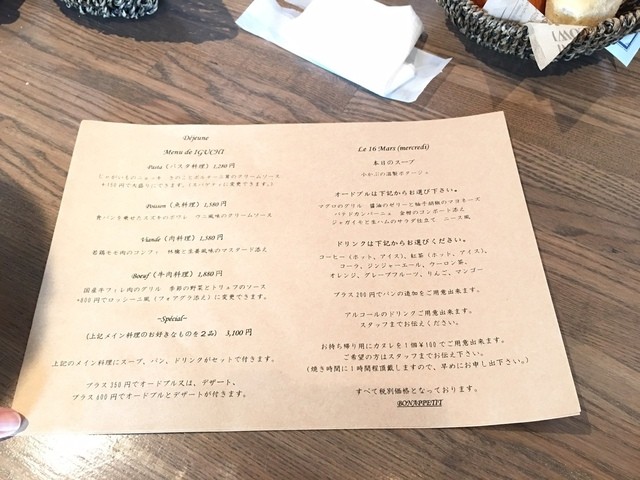 Déjeune
Menu de IGUCHI
Pasta（パスタ料理）1,280円
じゃがいものニョッキ きのことポルチーニ茸のクリームソース
+150円で大盛りにできます。(スパゲティに変更できます。)
Poisson（魚料理）1,580円
青パンを乗せたスズキのポワレ ウニ風味のクリームソース
Viande（肉料理）1,580円
若鶏モモ肉のコンフィ 林檎と生姜風味のマスタード添え
Boeuf（牛肉料理）1,880円
国産牛フィレ肉のグリル 季節の野菜とトリュフのソース
+800円でロッシーニ風（フォアグラ添え）に変更できます。
~Spécial~
（上記メイン料理のお好きなものを2み） 3,100円
上記のメイン料理にスープ、パン、ドリンクがセットで付きます。
プラス350円でオードブル又は、デザート、
プラス600円でオードブルとデザートが付きます。
Le 16 Mars (mercredi)
本日のスープ
小かぶの温製ポタージュ
オードブルは下記からお選び下さい。
マグロのグリル 醤油のゼリーと柚子胡椒のマヨネーズ
パテドカンパーニュ 金柑のコンポート添え
ジャガイモと生ハムのサラダ仕立て ニース風
ドリンクは下記からお選びください。
コーヒー（ホット、アイス）、紅茶（ホット、アイス）、
コーラ、ジンジャーエール、ウーロン茶、
オレンジ、グレープフルーツ、りんご、マンゴー
プラス200円でパンの追加をご用意出来ます。
アルコールのドリンクご用意出来ます。
スタッフまでお伝えください。
お持ち帰り用にカヌレを1個¥160でご用意出来ます。
ご希望の方はスタッフまでお伝え下さい。
（焼き時間に1時間程頂戴しますので、早めにお申し出下さい。）
すべて税別価格となっております。
BONAPPETIT